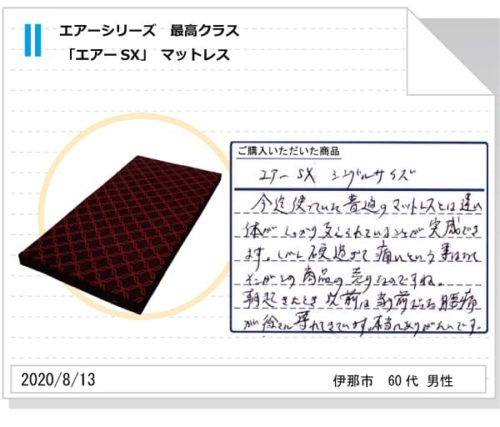 エアーシリーズ 最高クラス
「エアーSX」 マットレス
ご購入いただいた商品
エアー SX シングルサイズ
今迄使っていた普通のマットレスとは違い
体がしっかり支えられていることが実感でき
ます。しかし硬過ぎて痛いという事はなくて
この商品の売りなのですね。
朝起きたとき以前は当り前だった腰痛
が徐々に薄れてきています。本当にありがたいです。
2020/8/13
伊那市 60代 男性